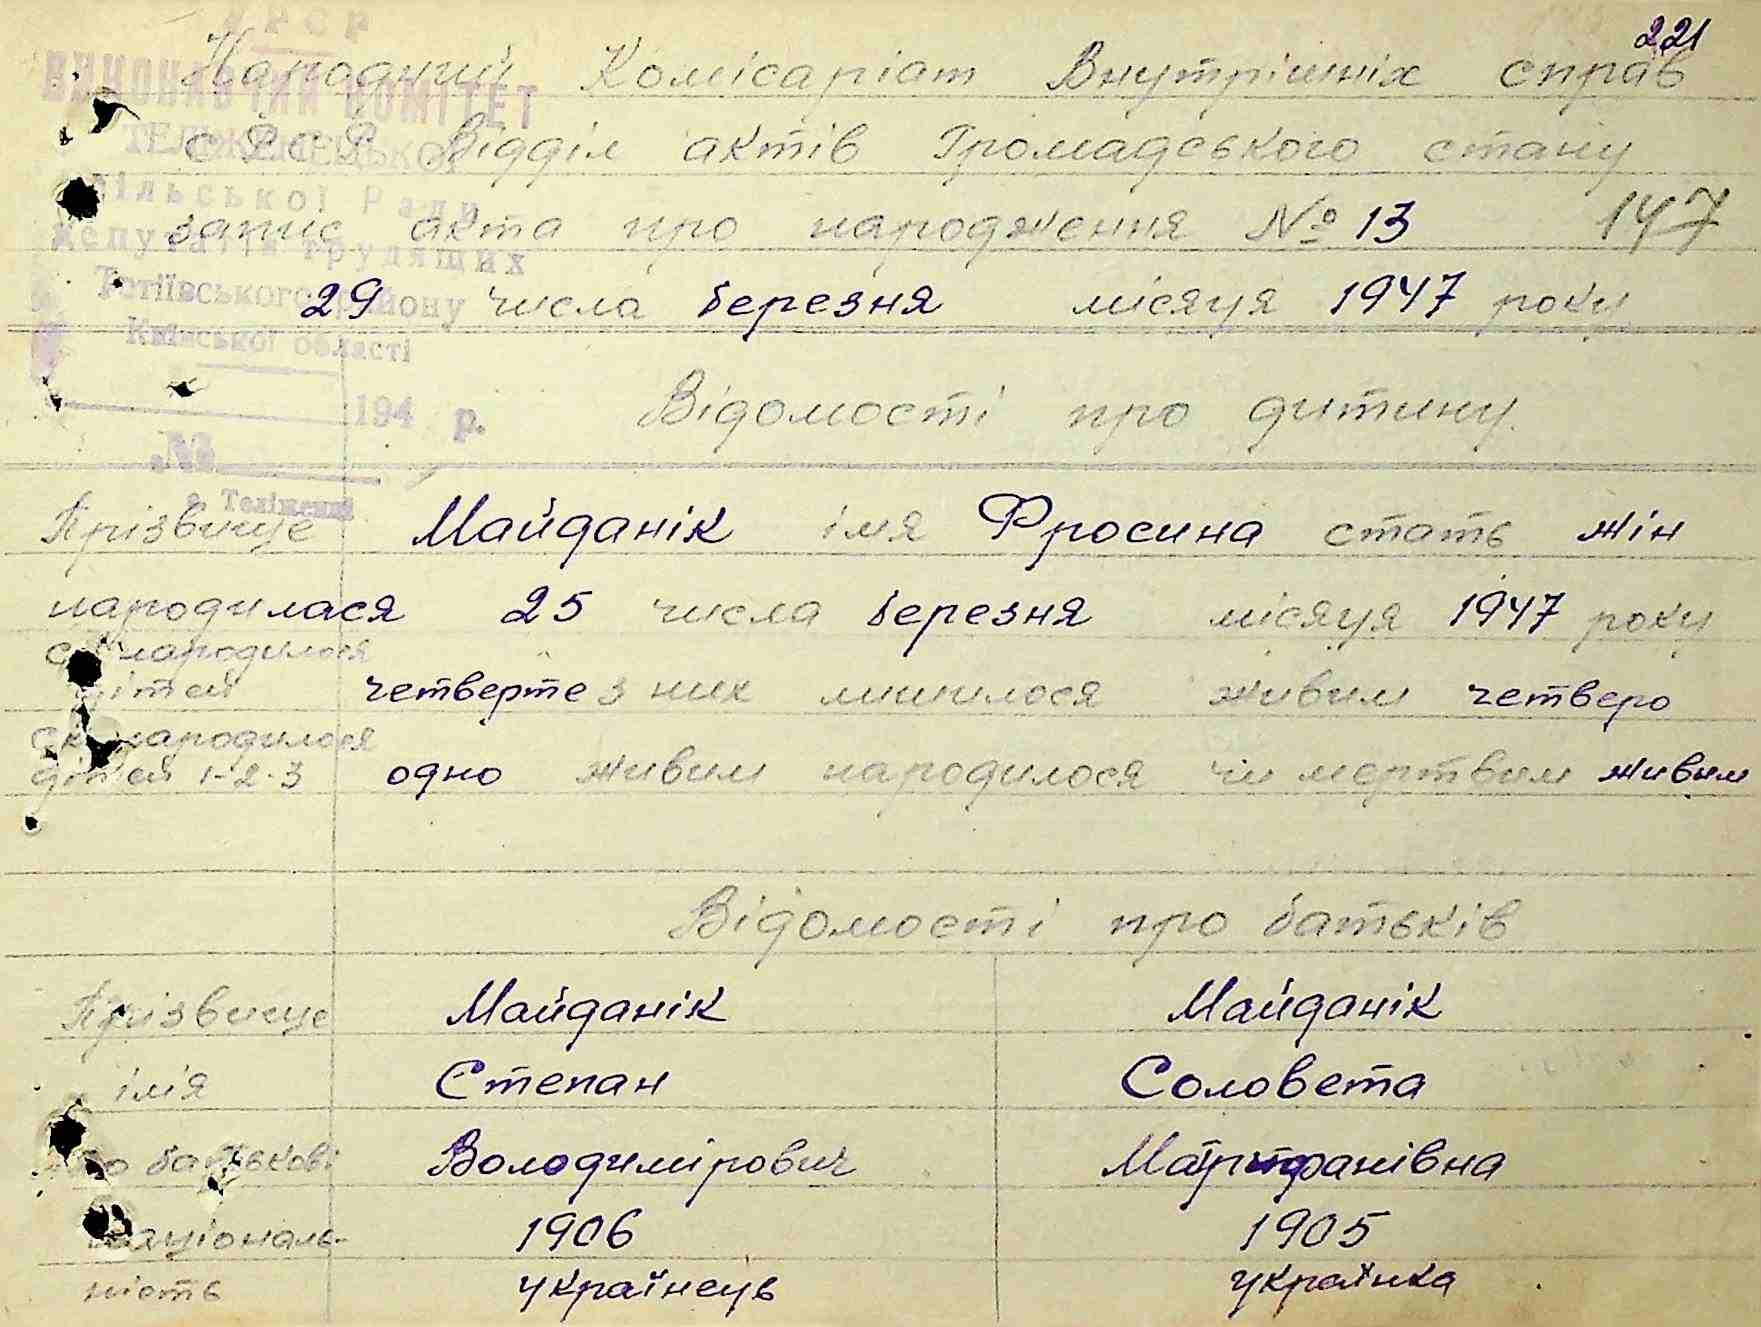 221
УРСР
ВИКОНАВЧИЙ КОМІТЕТ
ТЕЛІЖЕНЕЦЬКОЇ
сільської Ради
депутатів трудящих
Тетіївського району
Київської області
194 р.
№
с. Теліженці
Народний Комісаріат Внутрішніх справ
СРСР Відділ актів Громадського стану
запис акта про народження № 13 147
29 числа березня місяця 1947 року
Відомості про дитину.
Прізвище Майданік імя Фросина стать жін
народилася 25 числа березня місяця 1947 року
народилося
дітей четверте з них лишилося живим четверо
ск народилося
дітей 1-2-3 одно живим народилося чи мертвим живим
Відомості про батьків
Прізвище Майданік Майданік
імія Степан Соловета
по батькові Володимірович
1906 1905
національ-
ність українець українка